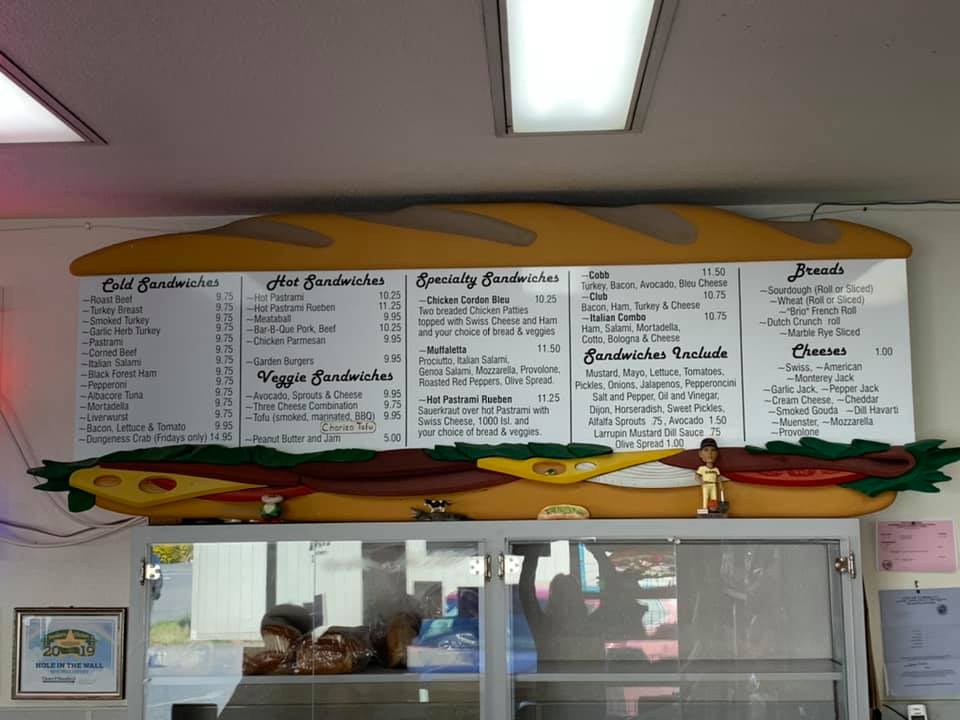 Cold Sandwiches
~Roast Beef 9.75
~Turkey Breast 9.75
~Smoked Turkey 9.75
~Garlic Herb Turkey 9.75
~Pastrami 9.75
~Corned Beef 9.75
~Italian Salami 9.75
~Black Forest Ham 9.75
~Pepperoni 9.75
~Albacore Tuna 9.75
~Mortadella 9.75
~Liverwurst 9.75
~Bacon, Lettuce & Tomato 9.95
~Dungeness Crab (Fridays only) 14.95
Hot Sandwiches
~Hot Pastrami 10.25
~Hot Pastrami Rueben 11.25
~Meataball 9.95
~Bar-B-Que Pork, Beef 10.25
~Chicken Parmesan 9.95
~Garden Burgers 9.95
Veggie Sandwiches
~Avocado, Sprouts & Cheese 9.95
~Three Cheese Combination 9.75
~Tofu (smoked, marinated, BBQ) 9.95
Chorizo Tofu
~Peanut Butter and Jam 5.00
Specialty Sandwiches
~Chicken Cordon Bleu 10.25
Two breaded Chicken Patties
topped with Swiss Cheese and Ham
and your choice of bread & veggies
~Muffaletta 11.50
Prociutto, Italian Salami,
Genoa Salami, Mozzarella, Provolone,
Roasted Red Peppers, Olive Spread.
~Hot Pastrami Rueben 11.25
Sauerkraut over hot Pastrami with
Swiss Cheese, 1000 Isl. and
your choice of bread & veggies.
~Cobb 11.50
Turkey, Bacon, Avocado, Bleu Cheese
~Club 10.75
Bacon, Ham, Turkey & Cheese
~Italian Combo 10.75
Ham, Salami, Mortadella,
Cotto, Bologna & Cheese
Sandwiches Include
Mustard, Mayo, Lettuce, Tomatoes,
Pickles, Onions, Jalapenos, Pepperoncini
Salt and Pepper, Oil and Vinegar,
Dijon, Horseradish, Sweet Pickles,
Alfalfa Sprouts .75, Avocado 1.50
Larrupin Mustard Dill Sauce .75
Olive Spread 1.00
Breads
~Sourdough (Roll or Sliced)
~Wheat (Roll or Sliced)
~"Brio" French Roll
~Dutch Crunch roll
~Marble Rye Sliced
Cheeses 1.00
~Swiss, ~American
~Monterey Jack
~Garlic Jack, ~Pepper Jack
~Cream Cheese, ~Cheddar
~Smoked Gouda ~Dill Havarti
~Muenster, ~Mozzarella
~Provolone
2019
HOLE IN THE WALL